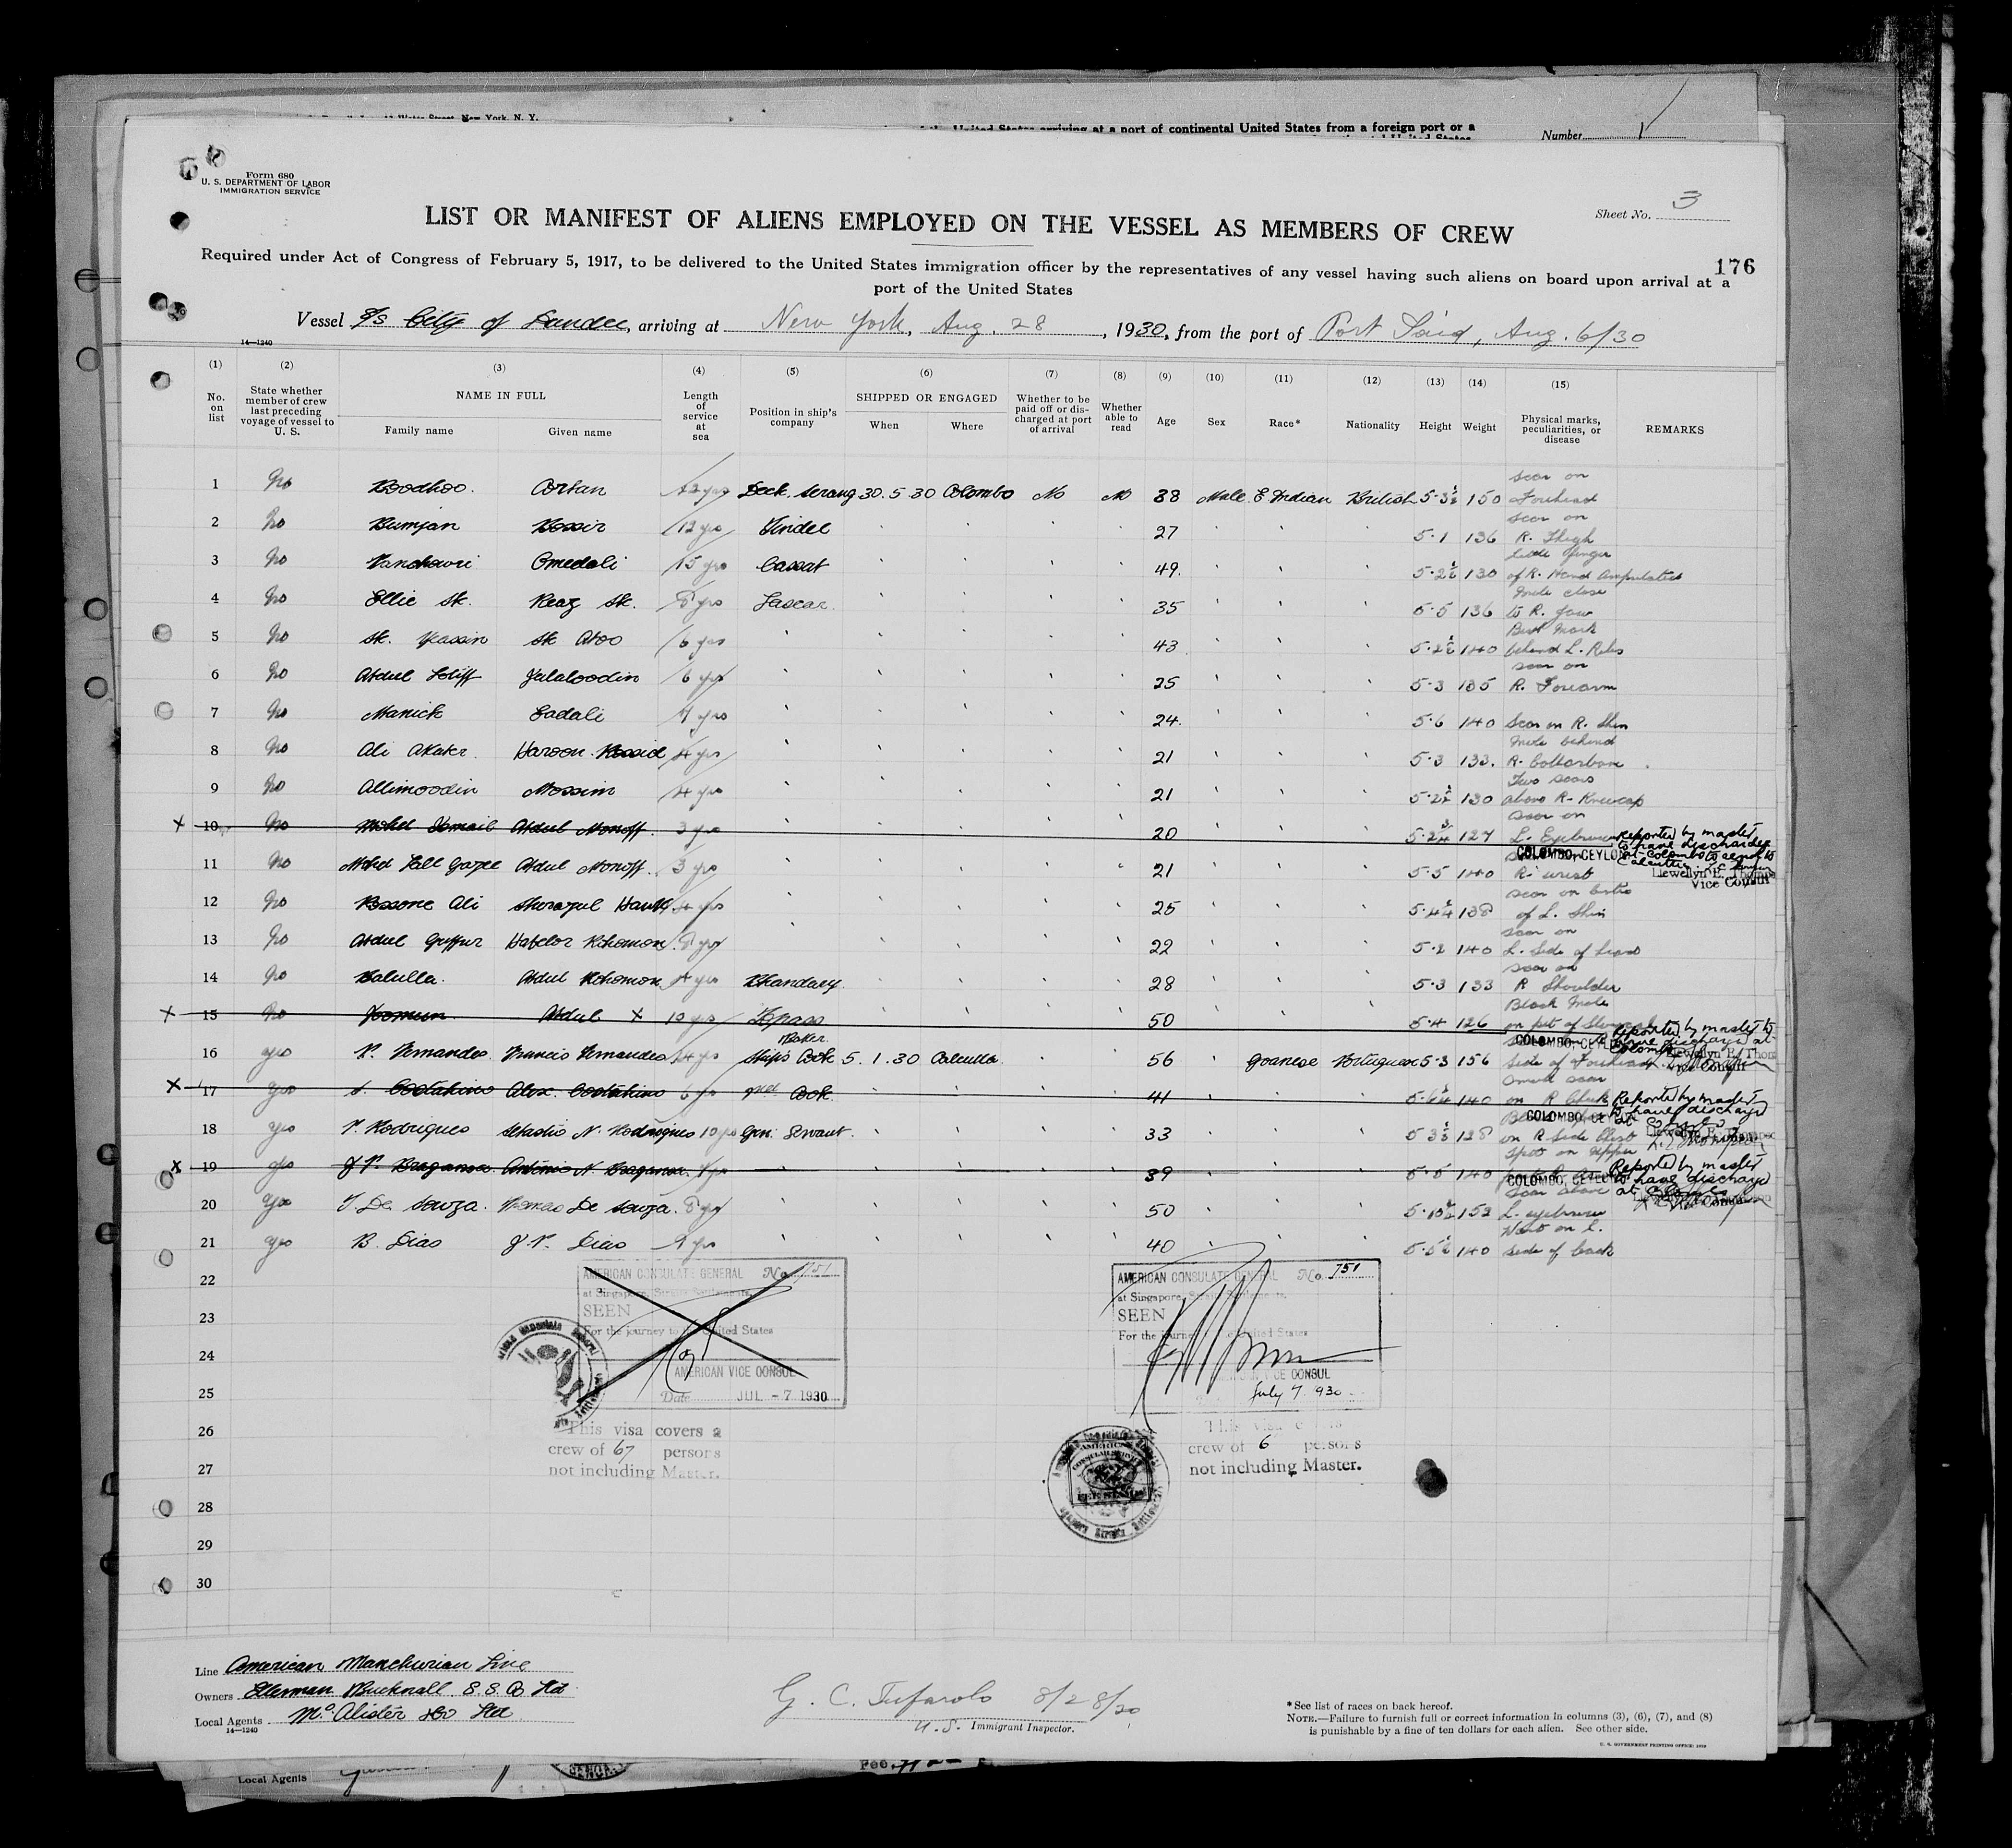 Water Street, New York, N. Y.
the United States arriving at a port of continental United States from a foreign port or a
Number
Form 680
U. S. DEPARTMENT OF LABOR
IMMIGRATION SERVICE
Sheet No. 3
LIST OR MANIFEST OF ALIENS EMPLOYED ON THE VESSEL AS MEMBERS OF CREW
176
Required under Act of Congress of February 5, 1917, to be delivered to the United States immigration officer by the representatives of any vessel having such aliens on board upon arrival at a
port of the United States
Vessel S/S City of Dundee, arriving at New York, Aug. 28, 1930, from the port of Port Said, Aug. 6/30
14—1240
(1) (2) (3) (4) (5) (6) (7) (8) (9) (10) (11) (12) (13) (14) (15)
No. on list
State whether member of crew last preceding voyage of vessel to U. S.
NAME IN FULL
Family name Given name
Length of service at sea
Position in ship's company
SHIPPED OR ENGAGED
When Where
Whether to be paid off or discharged at port of arrival
Whether able to read
Age Sex Race* Nationality Height Weight
Physical marks, peculiarities, or disease
REMARKS
1 No Boodhoo. Deck Serang 30.5.30 Colombo No No 38 Male E Indian British 5-3½ 150 Scar on Forehead
2 No Bumjan 12 yrs Tindel 27 5-1 136 Scar on R. Thigh
3 No Omedali 15 yrs Cassat 49. 5-2½ 130 Little Finger of R. Hand Amputated
4 No Ellie Sk. Reaz Sk. 8 yrs Lascar. 35 5-5 136 Mole close to R. Jaw
5 No Sk. Yeassin Sk Aboo 6 yrs 43 5-2½ 140 behind L.
6 No Abdul Lotiff Jalaloodin 6 yrs 25 5-3 135 Scar on R. Forearm
7 No Manick Eadali 7 yrs 24. 5-6 140 Scar on R. Shin
8 No Ali Akaber Haroon 4 yrs 21 5-3 133. Mole behind R. Collarbone
9 No Allimoodin Mossim 4 yrs 21 130 Two scars above R. Kneecap
X 10 No Mohd Ismail Abdul Monoff. 3 yrs 20 5-2¾ 127 Scar on L. Eyebrow Reported by master to have discharged at Colombo to send to Calcutta.
COLOMBO, CEYLON
Llewellyn E. Thompson
Vice Consul
11 No Abdul Monoff. 3 yrs 21 5-5 140 R. wrist
12 No Ali 4 yrs 25 138 of L. Shin
13 No Abdul Guffur Habelor Rohomon. 8 yrs 22 5-2 140 Scar on L. Side of head
14 No Balulla. Abdul Rohomon 4 yrs Bhandary. 28 5-3 133 Scar on R Shoulder
X 15 No Joomun Abdul X 10 yrs Topass 50 5-4 126 Black Mole on pit of Reported by master to have discharged at Colombo
COLOMBO, CEYLON
16 yes P. Fernandes. Francis Fernandes 24 yrs Ship's Cook Baker. 5.1.30 Calcutta 56 Goanese Portuguese 5-3 156 Side of Forehead
Vice Consul
X 17 yes Alex. Costahino 6 yrs 2nd Cook. 41 140 Small scar on R Cheek Reported by master to have discharged
COLOMBO, CEYLON
18 yes P. Rodrigues Sebastio N. Rodrigues 10 yrs Gen. Servant. 33 5-3½ 128 on R Side Chest
X 19 yes J P. Braganza. Antonio N. Braganza. 39 5-5 140 Spot on upper Reported by master to have discharged at Colombo
COLOMBO, CEYLON
Vice Consul
20 yes T De Souza. Thomas De Souza. 8 yrs 50 152 Scar above L. eyebrow
21 yes B. Dias J. P. Dias 40 5-5½ 140 Wart on L. side of back
22
23
24
25
26
27
28
29
30
AMERICAN CONSULATE GENERAL No. 751
at Singapore, Straits Settlements.
SEEN
For the journey to the United States
AMERICAN VICE CONSUL
Date JUL -7 1930
This visa covers a
crew of 67 persons
not including Master.
AMERICAN CONSULATE GENERAL No. 751
at Singapore, Straits Settlements.
SEEN
For the journey to the United States
AMERICAN VICE CONSUL
July 7. 930
This visa
crew of 6 persons
not including Master.
Line American Manchurian Line
Owners Ellerman Bucknall S.S. Co Ltd.
Local Agents McAlister &Co Ltd
14—1240
G. C. Tufarolo 8/28/30
U.S. Immigrant Inspector.
*See list of races on back hereof.
NOTE.—Failure to furnish full or correct information in columns (3), (6), (7), and (8)
is punishable by a fine of ten dollars for each alien. See other side.
U. S. GOVERNMENT PRINTING OFFICE: 1929
Local Agents
Fee